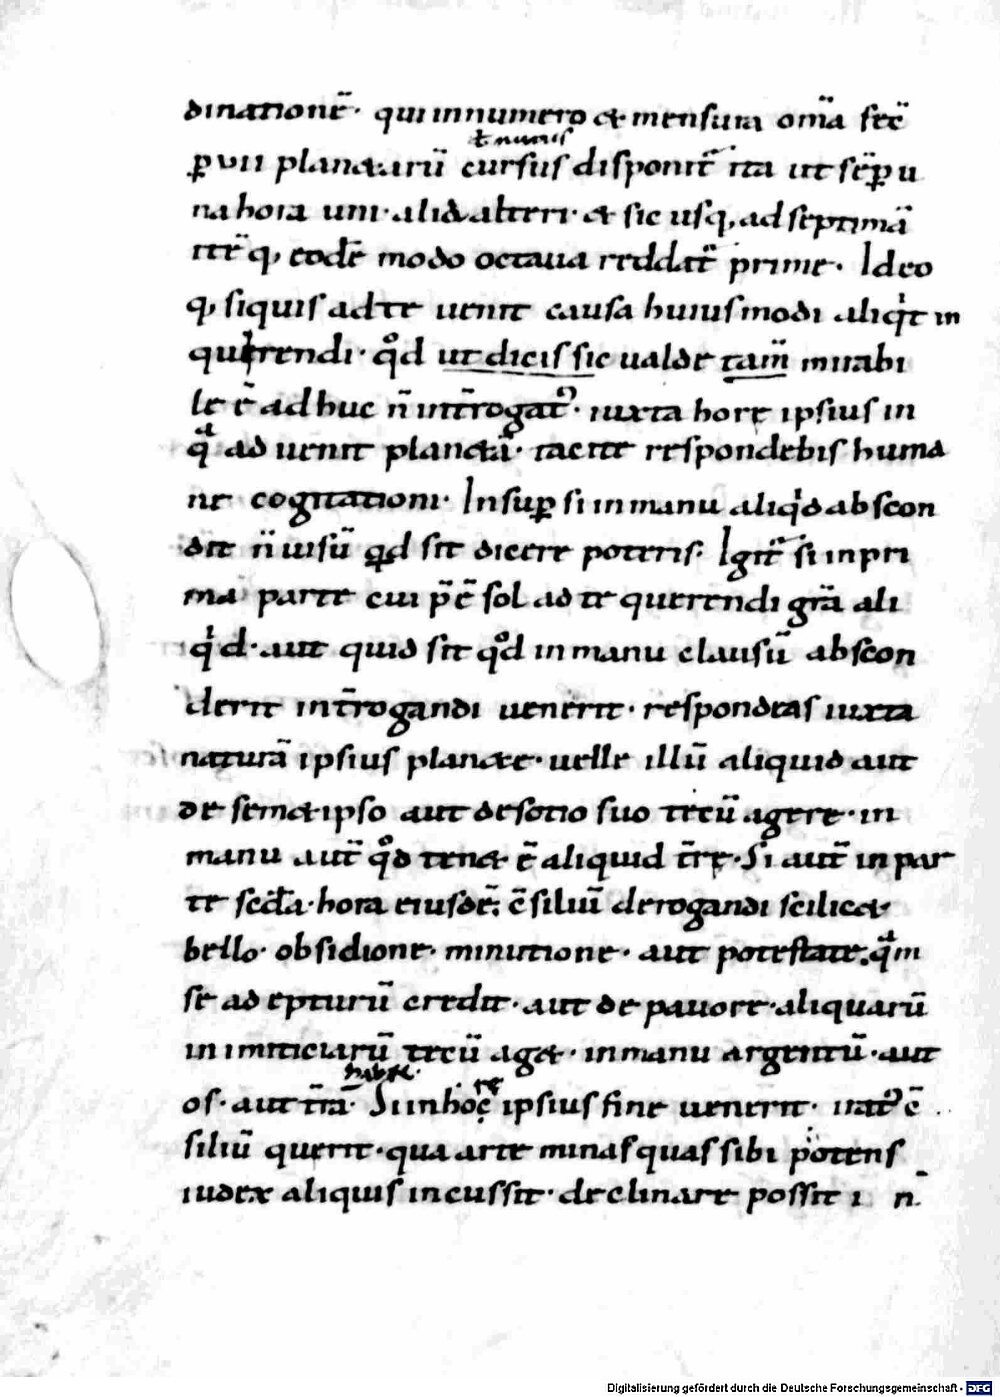 dinationē· qui in numero & mensura om̄a fec̄
ꝑ vii planetarū cursus disponit̄ ita ut sēꝑ u
ł numis
na hora uni· alid alteri· & sic usq, ad septimā
itēq, eodē modo octaua reddat̄ prime· Ideo
q, siquis ad te uenit causa huiusmodi aliqͥt in
querendi· qͦd ut dicis sic ualde tam̄ mirabi
le ē ad huc n̄ int̄rogat᾽· iuxta horę ipsius in
qͣ ad uenit planetā· tacite respondebis huma
ne cogitationi· Insuꝑ si in manu aliqͥd abscon
dit n̄ uisū quod sit dicere poteris· Igit̄ si in pri
ma parte cui p̄ē sol ad te querendi gr̄a ali
qͥd· aut quid sit qͦd in manu clausū abscon
derit int̄rogandi uenerit· respondeas iuxta
naturā ipsius planete· uelle illū aliquid aut
de semetipso aut de sotio suo tecū agere· in
manu aut̄ qͦd tenet ē aliquid t̄rę· Si aut̄ in par
te sc̄da· hora eiusdē· ē siliū derogandi scilicet
bello· obsidione· minutione· aut potestate· qͣm
se adepturū credit· aut de pauore· aliquarū
inimiciarū tecū aget· in manu argentū· aut
habet·
os· aut t̄rā· Si in hoc ipsius fine uenerit· irat᾽ ē
re
siliū querit· qua arte minas quas sibi potens
iudex aliquis incussit· declinare possit i n̄
Digitalisierung gefördert durch die Deutsche Forschungsgemeinschaft - DFG